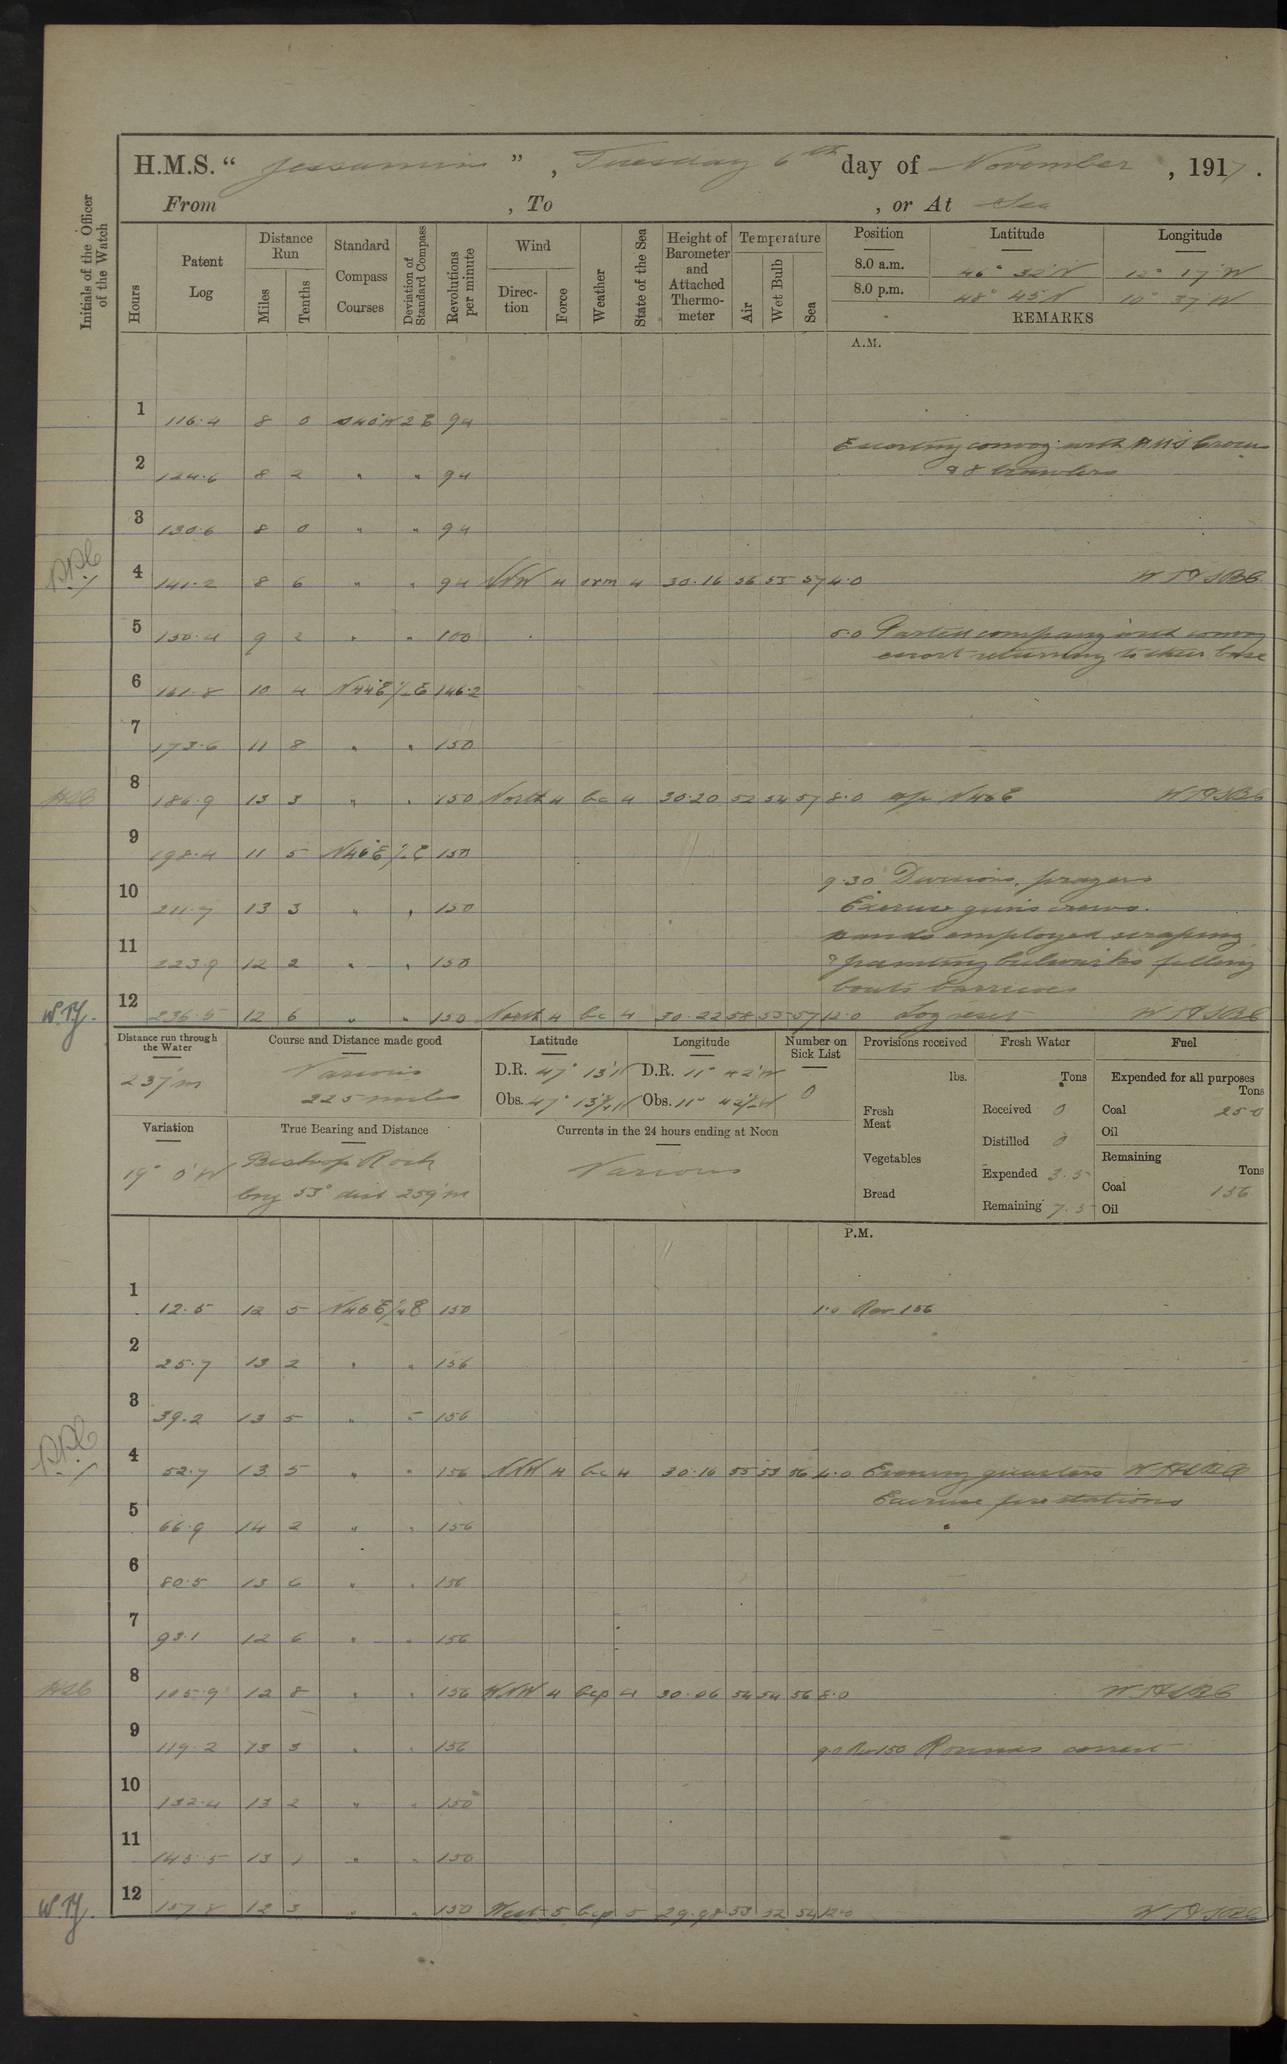 H.M.S. " Jessamine ", Tuesday 6th day of November, 1917.
From , To , or At Sea
Initials of the Officer of the Watch
Hours
Patent Log
Distance Run
Miles
Tenths
Standard Compass Courses
Deviation of Standard Compass
Revolutions per minute
Wind
Direction
Force
Weather
State of the Sea
Height of Barometer and Attached Thermometer
Temperature
Air
Wet Bulb
Sea
Position Latitude Longitude
8.0 a.m. 46° 32'N 12° 17'W
8.0 p.m. 48° 45'N 10° 37'W
REMARKS
A.M.
1 116.4 8 0 S40W 2E 94
Escorting convoy with H.M.S. Crocus
2 124.6 8 2 " " 94
& 8 trawlers
3 130.6 8 0 " " 94
4 141.2 8 6 " " 94 NNW 4 orm 4 30.16 56 55 57 4.0
5 150.4 9 2 " " 100 5.0 Parted company with convoy
escort returning to their base
6 161.8 10 4 N44E ½E 146.2
7 173.6 11 8 " " 150
8 186.9 13 3 " " 150 North 4 bc 4 30.20 52 54 57 8.0 a/c N46E
9 198.4 11 5 N46E ½E 150
9.30 Divisions, prayers
10 211.7 13 3 " " 150 Exercise guns crews.
hands employed scraping
11 223.9 12 2 " " 150 & painting bulwarks filling
boats barricoes
12 236.5 12 6 " " 150 North 4 bc 4 30.22 58 55 57 12.0 Log reset
W.T.Y.
Distance run through the Water
237m
Course and Distance made good
Various
225 miles
Latitude
D.R. 47° 13'N
Obs. 47° 13½N
Longitude
D.R. 11° 42'W
Obs. 11° 42½W
Number on Sick List
0
Variation
19° 0'W
True Bearing and Distance
Bishop Rock
brg 53° dist 259'm
Currents in the 24 hours ending at Noon
Various
Provisions received
lbs.
Fresh Meat
Vegetables
Bread
Fresh Water
Tons
Received 0
Distilled 0
Expended 3.5
Remaining 7.5
Fuel
Expended for all purposes
Tons
Coal 25.0
Oil
Remaining
Tons
Coal 156
Oil
P.M.
1 12.5 12 5 N46E ½E 150 1.0 Rev 156
2 25.7 13 2 " " 156
3 39.2 13 5 " " 156
4 52.7 13 5 " " 156 NNW 4 bc 4 30.16 55 53 56 4.0 Evening quarters
Exercise fire stations
5 66.9 14 2 " " 156
6 80.5 13 6 " " 156
7 93.1 12 6 " " 156
8 105.9 12 8 " " 156 WNW 4 bcp 4 30.06 54 54 56 8.0
9 119.2 13 3 " " 156 9.0 Rev 150 Rounds correct
10 132.4 13 2 " " 150
11 145.5 13 1 " " 150
12 157.8 12 3 " " 150 West 5 bcp 5 29.98 53 52 54 12.0
W.T.Y.